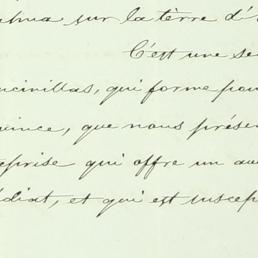 ahua sur la tèrre d'
C'est une se
ucinillas, qui forme pou
vince, que nous présen
eprise qui offre un av
édiat, et qui est suscep